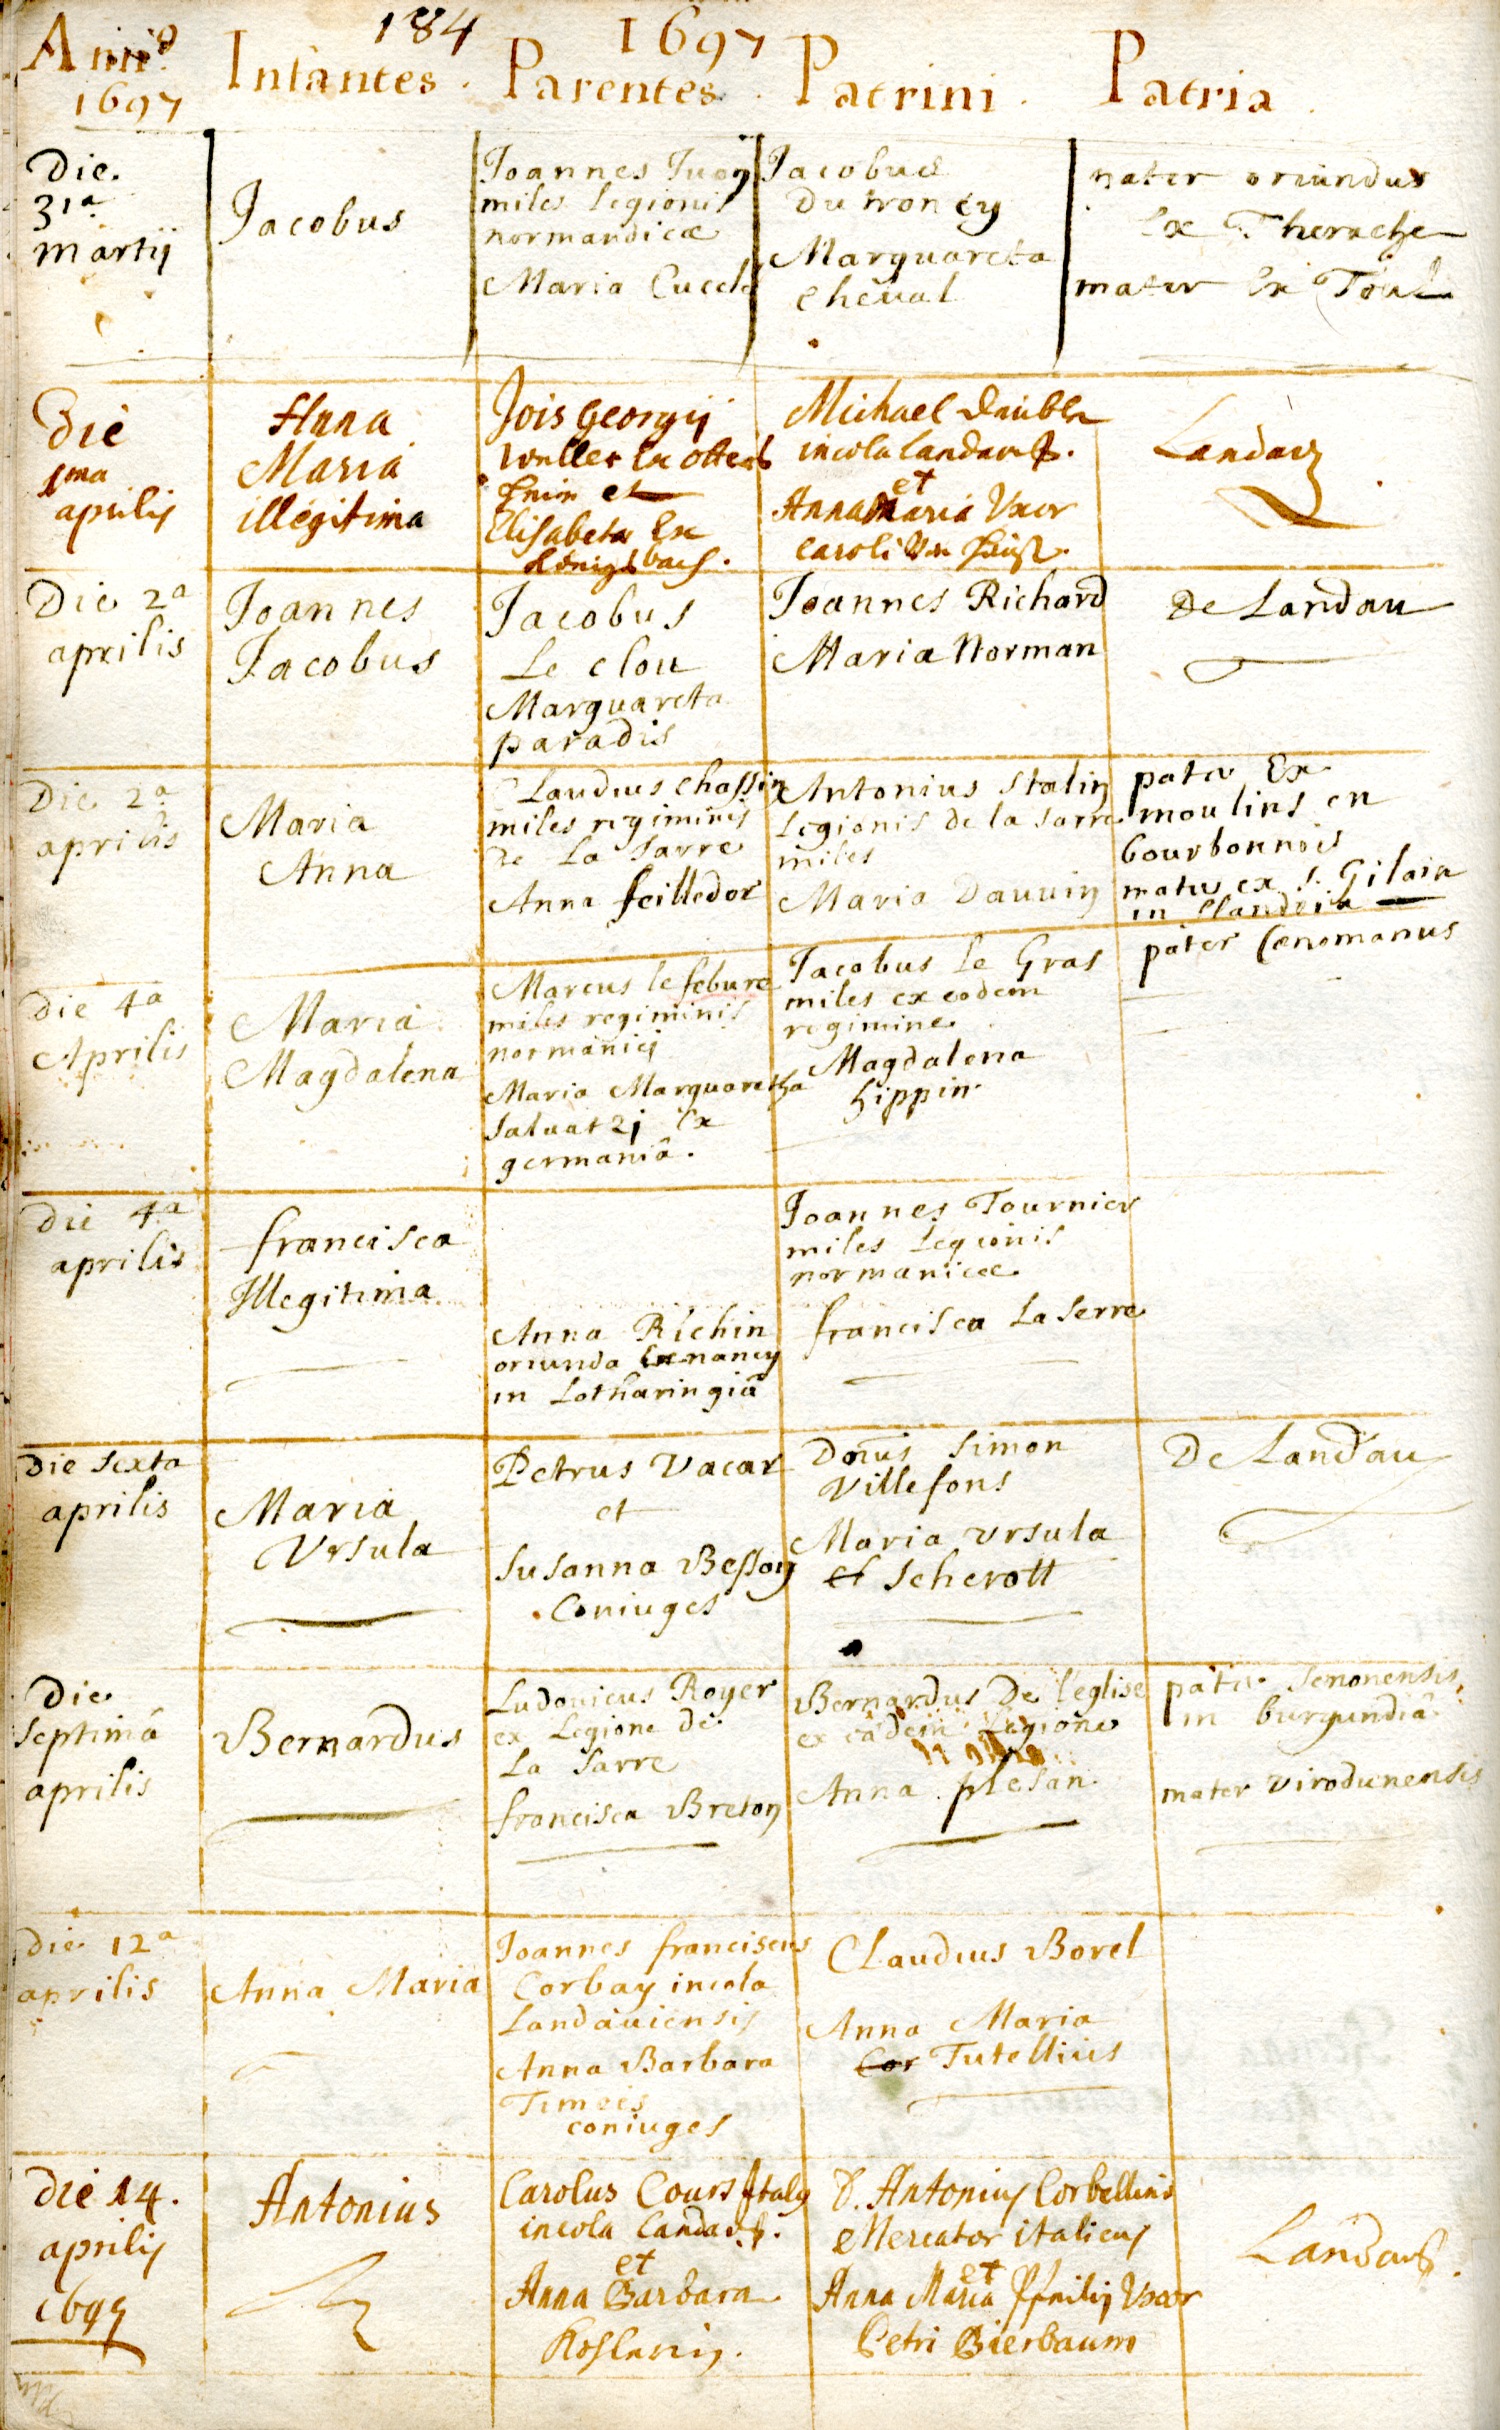 184
1697
Anno
1697
Infantes.
Parentes.
Patrini.
Patria.
Die.
31a
martij
Jacobus
Joannes Juon
miles legionis
normandicæ
Maria Cucele
Jacobus
Dutroncy
Marguareta
cheual
pater oriundus
Ex Therache
mater Ex Toul
Die
1ma
aprilis
Anna
Maria
illegitima
Jois Georgij
et
Elisabeta Ex
Königsbach.
Michael
incola Landau
et
Anna Maria Vxor
Caroli
Landau
Die 2a
aprilis
Joannes
Jacobus
Jacobus
Le clou
Marguareta
paradis
Joannes Richard
Maria Norman
De Landau
Die 2a
aprilis
Maria
Anna
Claudius chassin
miles regiminis
de La Sarre
Anna feilledor
Antonius Stalin
Legionis de la sarre
miles
Maria Dauuin
pater Ex
moulins en
bourbonnois
mater ex s. Gilain
in flandria
Die 4a
Aprilis
Maria
Magdalena
Marcus lefebure
miles regiminis
normanici
Maria Marguaretha
Saluatzi Ex
germaniâ.
Jacobus Le Gras
miles ex eodem
regimine
Magdalena
hippin
pater Cenomanus
Die 4a
aprilis
francisca
Illegitima
Anna Richin
oriunda Ex nancy
in Lotharingiâ
Joannes Tournier
miles Legionis
normanicæ
francisca La Serre
Die Sexta
aprilis
Maria
Vrsula
Petrus Vacar
et
Susanna Besson
Coniuges
Donus Simon
Villefons
Maria Vrsula
et Scherott
De Landau
Die
Septimâ
aprilis
Bernardus
Ludouicus Royer
ex Legione de
La Sarre
francisca Breton
Bernardus De l'eglise
ex eâdem Legione
Anna plesan
pater Senonensis
in burgundiâ
mater Virodunensis
Die 12a
aprilis
Anna Maria
Joannes franciscus
Corbay incola
Landauiensis
Anna Barbara
Timeis
coniuges
Claudius Borel
Anna Maria
Cor Tutellius
Die 14.
aprilis
1697
Antonius
Carolus Cours Italy
incola Landau.
et
Anna Barbara
D. Antonius Corbellini
Mercator italicus
et
Anna Maria Pfeilij Vxor
Petri Bierbaum
Landau